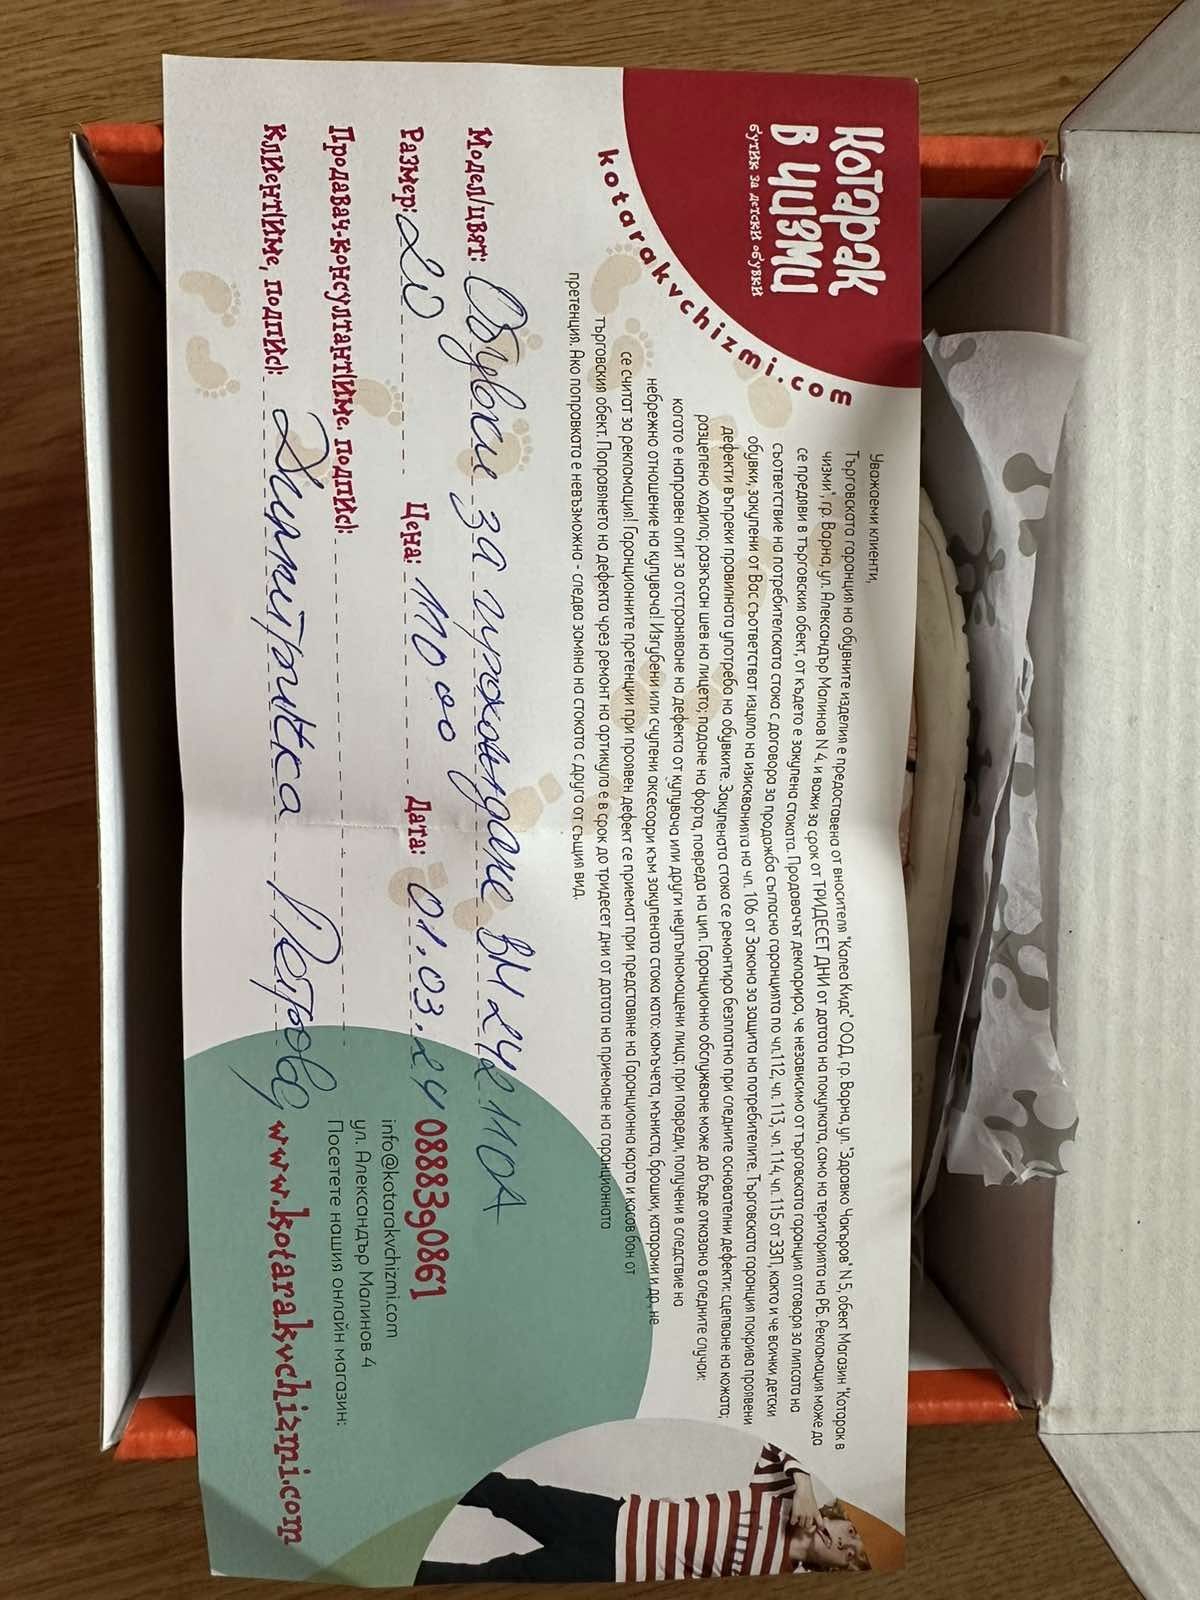 котарак
в чизми
бутик за детски обувки
kotarakvchizmi.com
Уважаеми клиенти,
Търговската гаранция на обувните изделия е предоставена от вносителя "Калеа Кидс" ООД, гр. Варна, ул. "Здравко Чакъров" N 5, обект Магазин "Котарак в
чизми", гр. Варна, ул. Александър Малинов N 4, и важи за срок от ТРИДЕСЕТ ДНИ от датата на покупката, само на територията на РБ. Рекламация може да
се предяви в търговския обект, от където е закупена стоката. Продавачът декларира, че независимо от търговската гаранция отговаря за липсата на
съответствие на потребителската стока с договора за продажба съгласно гаранцията по чл.112, чл. 113, чл. 114, чл. 115 от ЗЗП, както и че всички детски
обувки, закупени от Вас съответстват изцяло на изискванията на чл. 106 от Закона за защита на потребителите. Търговската гаранция покрива проявени
дефекти въпреки правилната употреба на обувките. Закупената стока се ремонтира безплатно при следните основателни дефекти: сцепване на кожата;
разцепено ходило; разкъсан шев на лицето; падане на форта, повреда на цип. Гаранционно обслужване може да бъде отказано в следните случаи:
когато е направен опит за отстраняване на дефекта от купувача или други неупълномощени лица; при повреди, получени в следствие на
небрежно отношение на купувача! Изгубени или счупени аксесоари към закупената стока като: камъчета, мъниста, брошки, катарами и др. не
се считат за рекламация! Гаранционните претенции при проявен дефект се приемат при представяне на Гаранционна карта и касов бон от
търговския обект. Поправянето на дефекта чрез ремонт на артикула е в срок до тридесет дни от датата на приемане на гаранционната
претенция. Ако поправката е невъзможно - следва замяна на стоката с друга от същия вид.
Модел/цвят: Обувки за прохождане ВМ 242110А
Размер: 20 Цена: 110 00 Дата: 01.03.24
Продавач-консултант(име, подпис):
Клиент(име, подпис): Димитричка Петрова
0888390861
info@kotarakvchizmi.com
ул. Александър Малинов 4
Посетете нашия онлайн магазин:
www.kotarakvchizmi.com